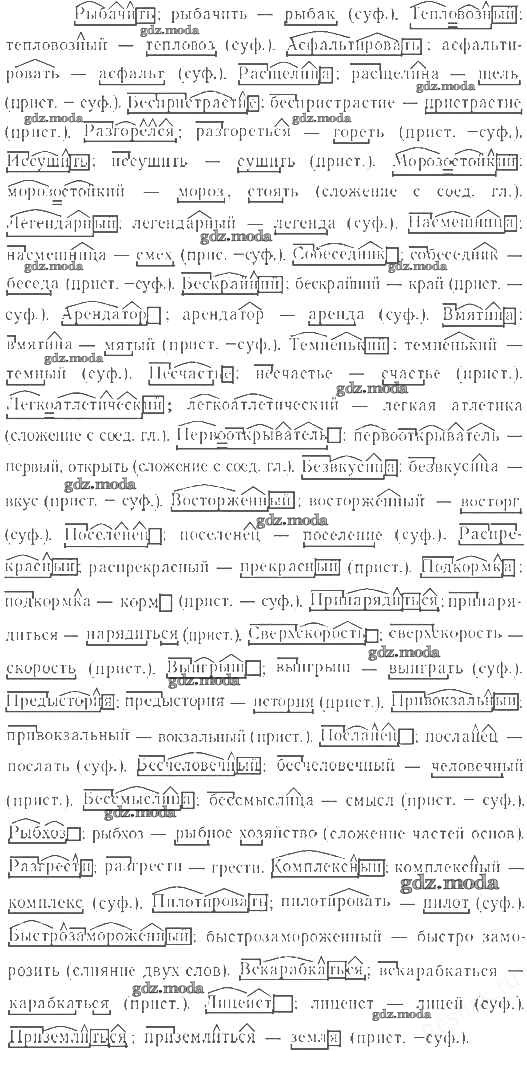 Рыбачить; рыбачить — рыбак (суф.). Тепловозный;
gdz.moda
тепловозный — тепловоз (суф.). Асфальтировать; асфальти-
ровать — асфальт (суф.). Расщелина; расщелина — щель
gdz.moda
(прист. – суф.). Беспристрастие; беспристрастие — пристрастие
gdz.moda gdz.moda
(прист.). Разгорелся; разгореться — гореть (прист. –суф.).
Иссушить; иссушить — сушить (прист.). Морозостойкий;
морозостойкий — мороз, стоять (сложение с соед. гл.).
Легендарный; легендарный — легенда (суф.). Насмешница;
gdz.moda
насмешница — смех (прис. –суф.). Собеседник; собеседник —
gdz.moda gdz.moda
беседа (прист. –суф.). Бескрайний; бескрайний — край (прист. —
суф.). Арендатор; арендатор — аренда (суф.). Вмятина;
вмятина — мятый (прист. –суф.). Темненький; темненький —
gdz.moda
темный (суф.). Несчастье; несчастье — счастье (прист.).
gdz.moda
Легкоатлетический; легкоатлетический — легкая атлетика
(сложение с соед. гл.). Первооткрыватель; первооткрыватель —
первый, открыть (сложение с соед. гл.). Безвкусица; безвкусица —
gdz.moda
вкус (прист. – суф.). Восторженный; восторженный — восторг
gdz.moda
(суф.). Поселенец; поселенец — поселение (суф.). Распре-
красный; распрекрасный — прекрасный (прист.). Подкормка;
подкормка — корм (прист. — суф.). Принарядиться; принаря-
диться — нарядиться (прист.). Сверхскорость; сверхскорость —
gdz.moda
скорость (прист.). Выигрыш; выигрыш — выиграть (суф.).
gdz.moda
Предыстория; предыстория — история (прист.). Привокзальный;
привокзальный — вокзальный (прист.). Посланец; посланец —
послать (суф.). Бесчеловечный; бесчеловечный — человечный
(прист.). Бессмыслица; бессмыслица — смысл (прист. – суф.).
gdz.moda
Рыбхоз; рыбхоз — рыбное хозяйство (сложение частей основ).
Разгрести; разгрести — грести. Комплексный; комплексный —
gdz.moda
комплекс (суф.). Пилотировать; пилотировать — пилот (суф.).
Быстрозамороженный; быстрозамороженный — быстро замо-
розить (слияние двух слов). Вскарабкаться; вскарабкаться —
gdz.moda
карабкаться (прист.). Лицеист; лицеист — лицей (суф.).
gdz.moda
Приземлиться; приземлиться — земля (прист. –суф.).